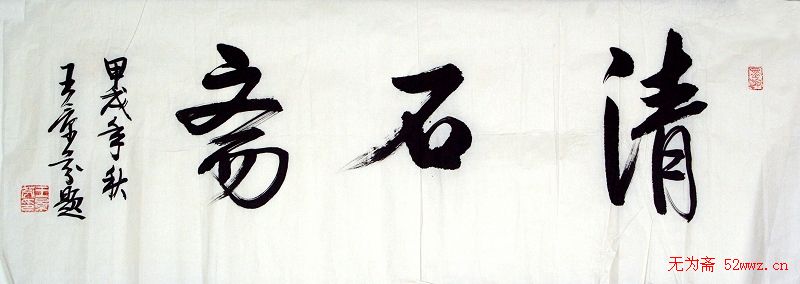 清石斋
甲戌年秋
王景芬题
无为斋 52wwz.cn